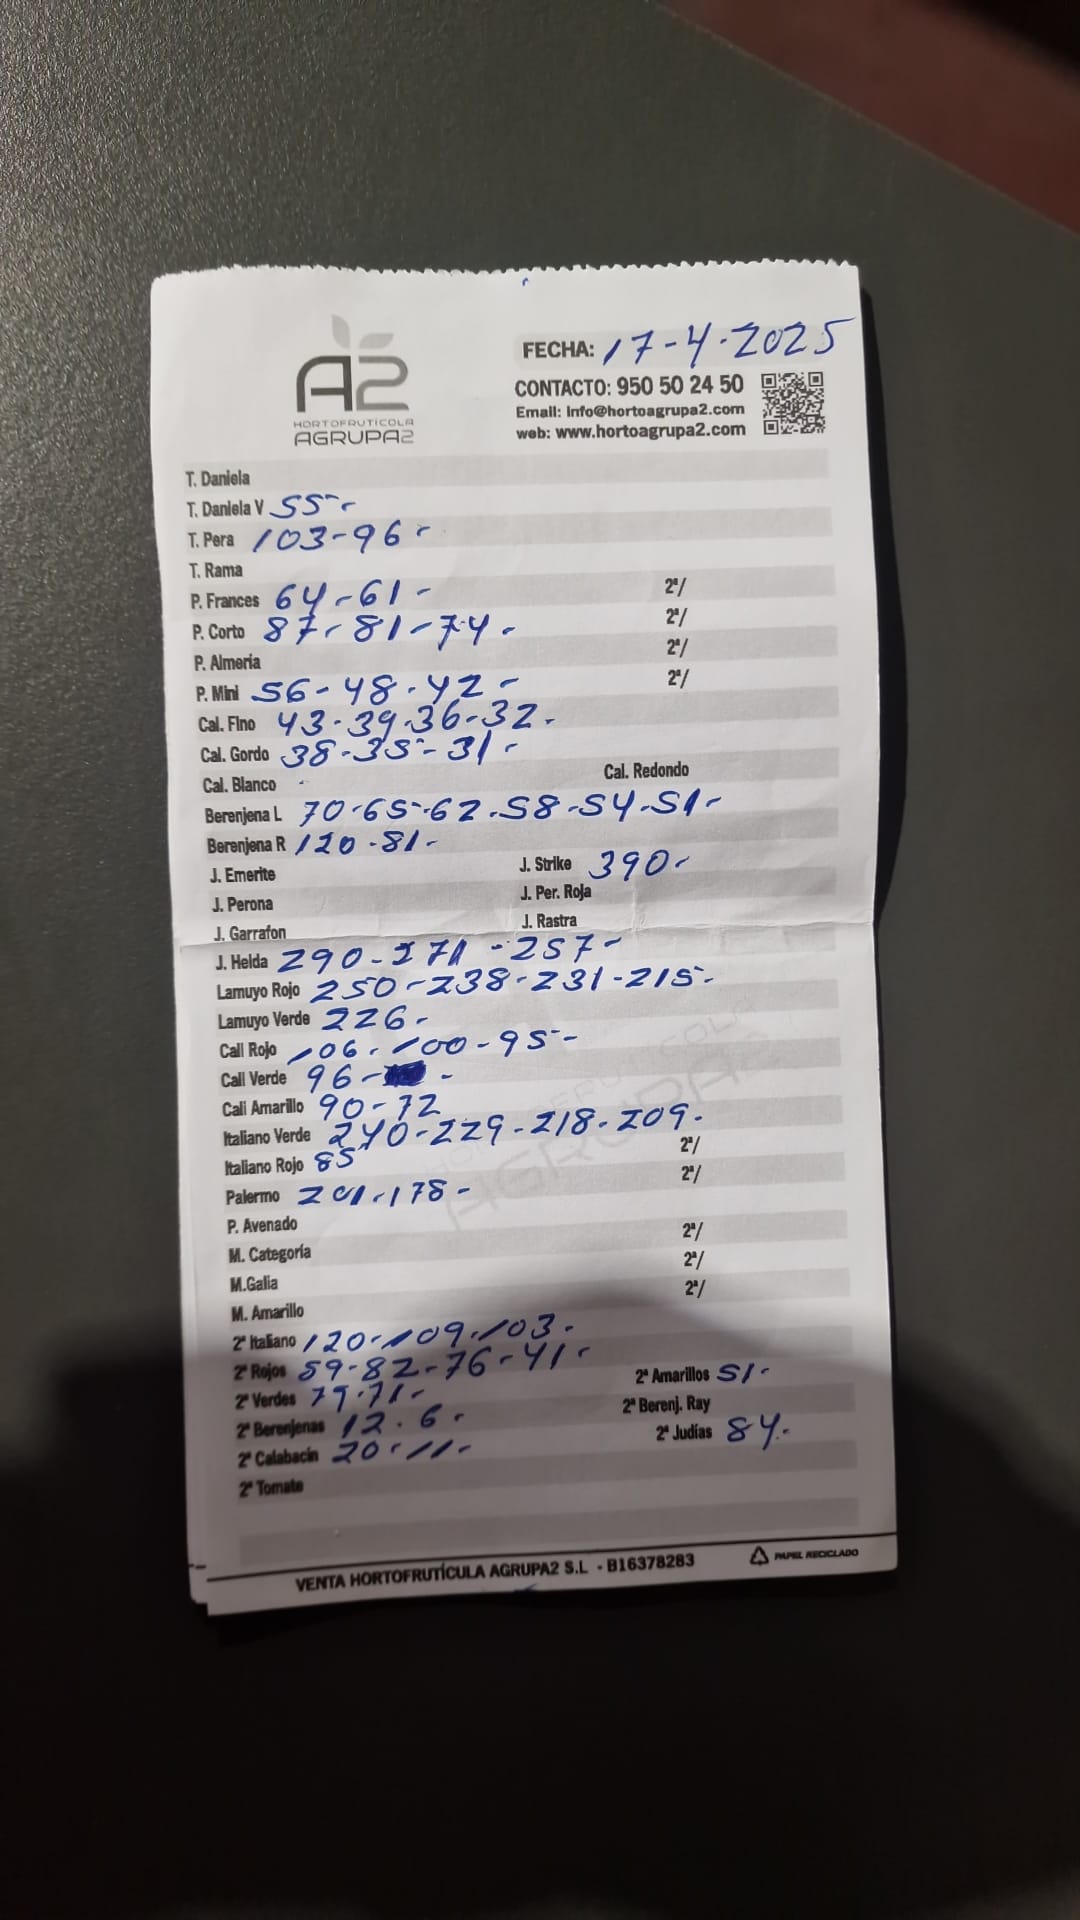 A2
HORTOFRUTÍCOLA
AGRUPA2
FECHA: 17-4-2025
CONTACTO: 950 50 24 50
Email: info@hortoagrupa2.com
web: www.hortoagrupa2.com
T. Daniela
T. Daniela V 55-
T. Pera 103-96-
T. Rama
P. Frances 64-61- 2ª/
P. Corto 87-81-74- 2ª/
P. Almería 2ª/
P. Mini 56-48-42- 2ª/
Cal. Fino 43-39-36-32-
Cal. Gordo 38-35-31-
Cal. Blanco Cal. Redondo
Berenjena L 70-65-62-58-54-51-
Berenjena R 120-81-
J. Emerite J. Strike 390-
J. Perona J. Per. Roja
J. Garrafon J. Rastra
J. Helda 290-271-257-
Lamuyo Rojo 250-238-231-215-
Lamuyo Verde 226-
Cali Rojo 106-100-95-
Cali Verde 96-
Cali Amarillo 90-72
Italiano Verde 240-229-218-209-
Italiano Rojo 85 2ª/
Palermo 201-178- 2ª/
P. Avenado
M. Categoría 2ª/
M.Galia 2ª/
M. Amarillo 2ª/
2ª Italiano 120-109-103-
2ª Rojos 82-76-41-
2ª Verdes 71- 2ª Amarillos 51-
2ª Berenjenas 12-6- 2ª Berenj. Ray
2ª Calabacin 20-11- 2ª Judías 84-
2ª Tomate
VENTA HORTOFRUTÍCULA AGRUPA2 S.L - B16378283
PAPEL RECICLADO